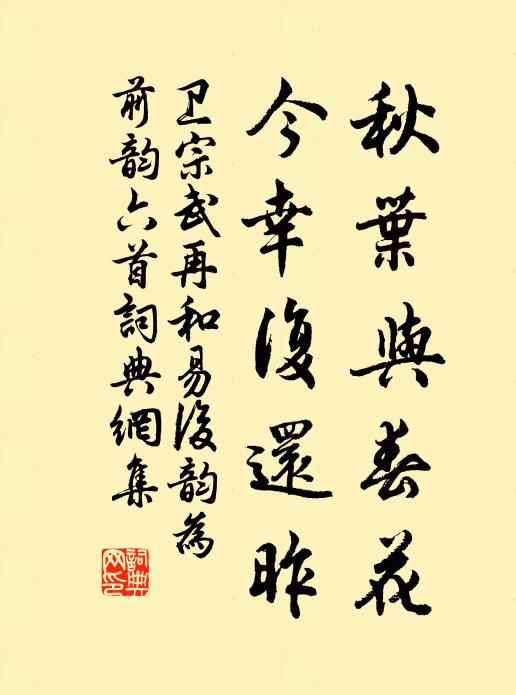 秋葉與春花
今幸復還昨
卫宗武再和易後韵為
前韵六首詞典網集
詞典网印